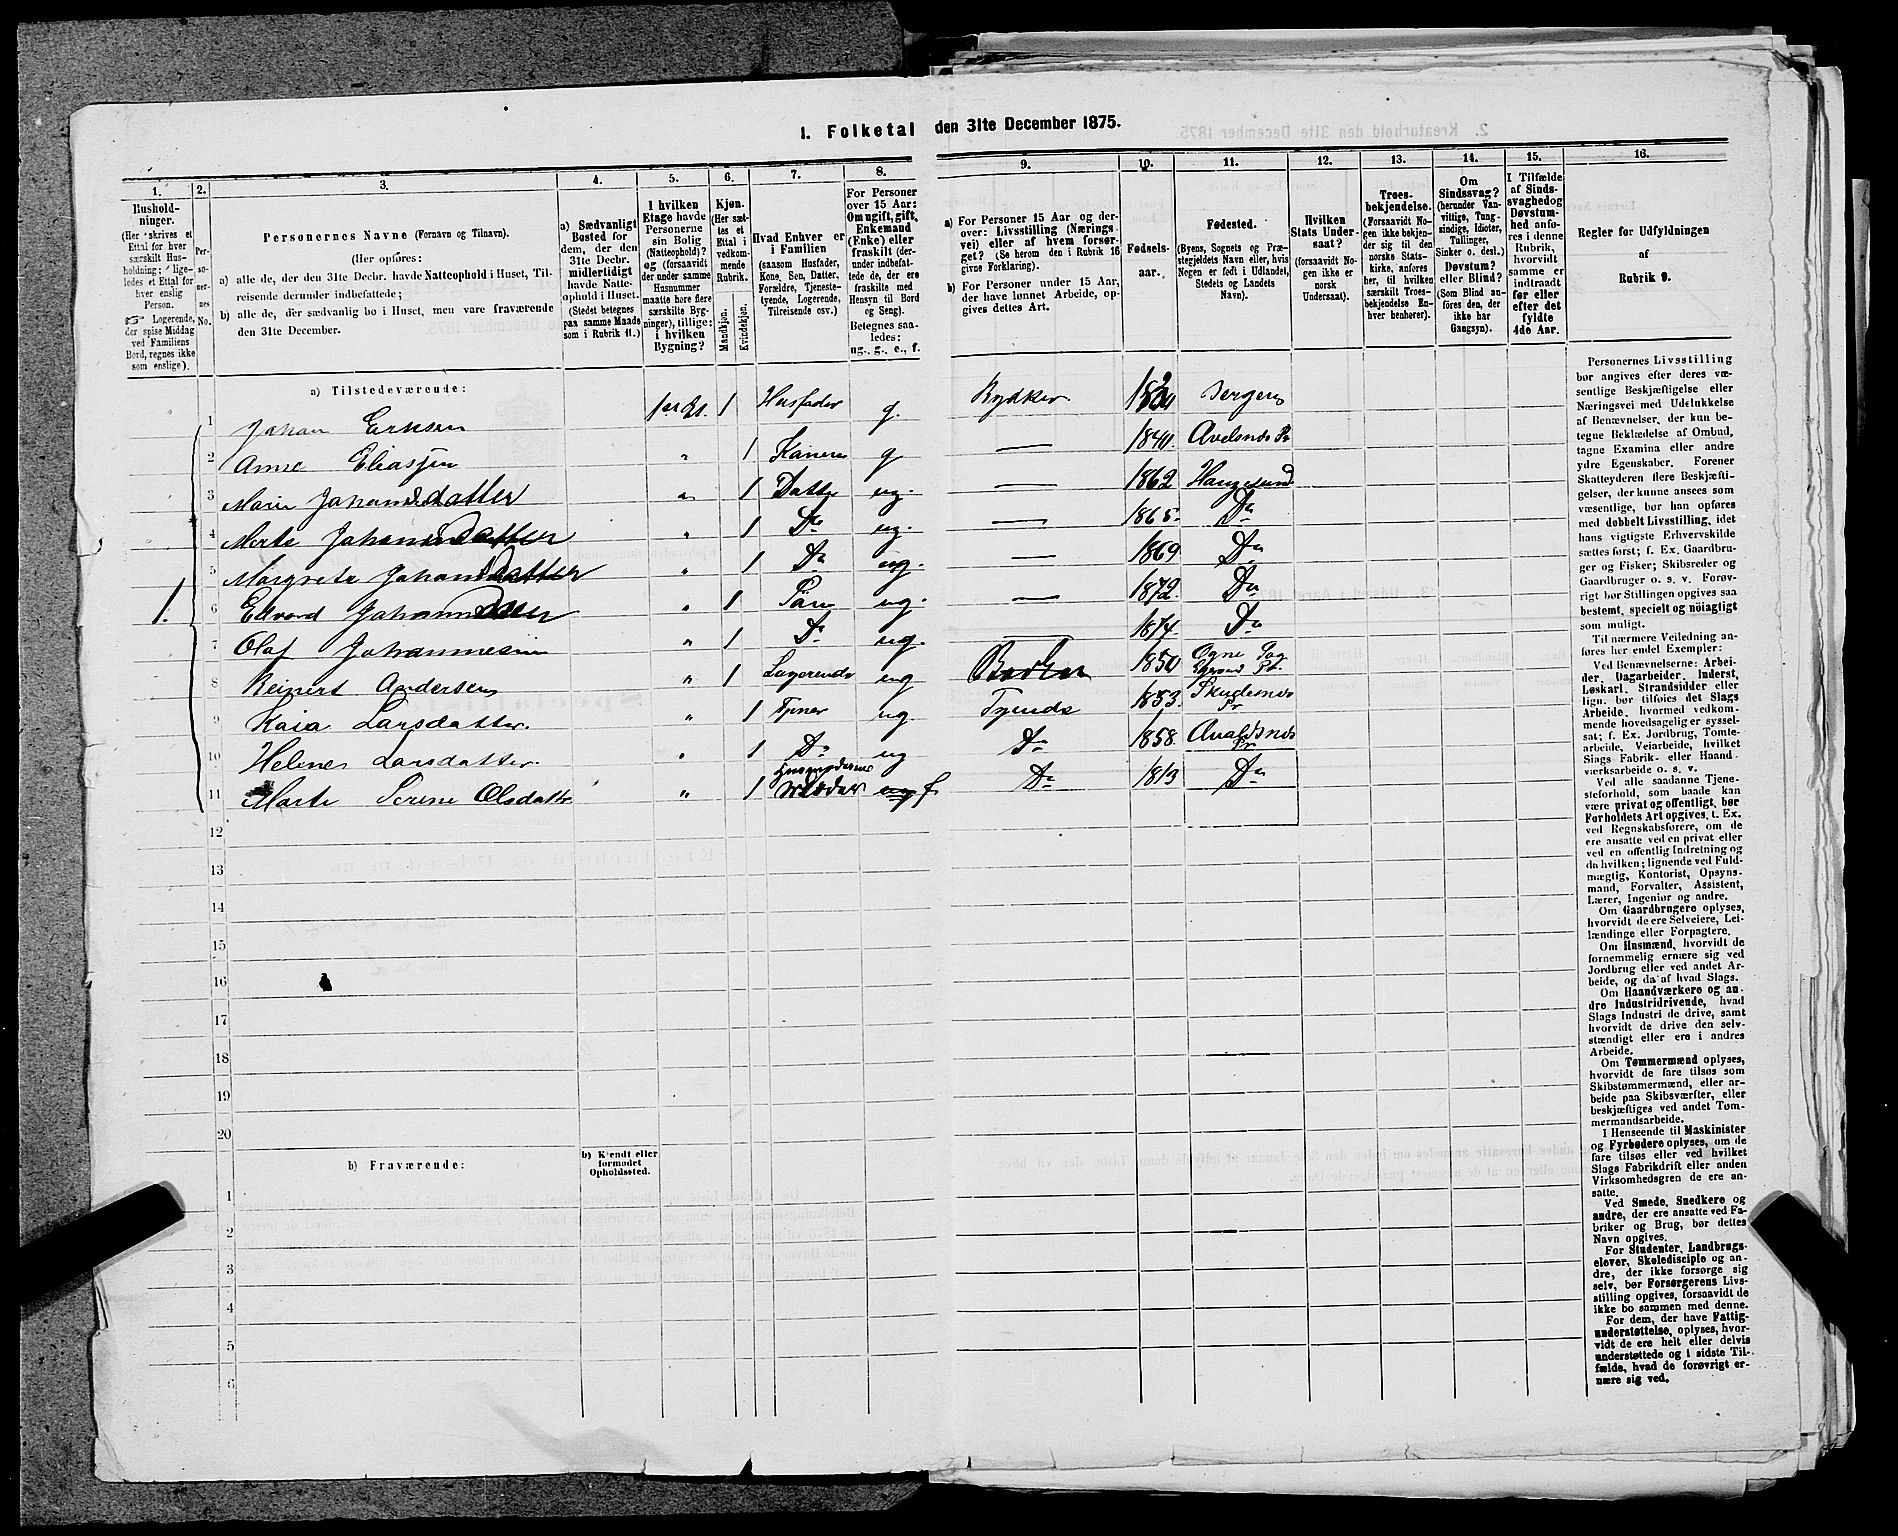 1. Folketal den 31te December 1875.
1. 2. 3. 4. 5. 6. 7. 8. 9. 10. 11. 12. 13. 14. 15. 16.
Husholdninger.
(Her skrives et
Ettal for hver
særskilt Husholdning;
ligeledes et Ettal for
hver enslig
Person.
☞ Logerende,
der spise Middag
ved Familiens
Bord, regnes ikke
som enslige).
Personernes No.
Personernes Navne (Fornavn og Tilnavn).
(Her opføres:
a) alle, de, der den 31te Decbr. havde Natteophold i Huset, Tilreisende
derunder indbefattede;
b) alle, de, der sædvanlig bo i Huset, men vare fraværende
den 31te December.
a) Sædvanligt
Bosted for
dem, der den
31te Decbr.
midlertidigt
havde Natteophold
i Huset.
(Stedet betegnes
paa samme Maade
som i Rubrik 11.)
I hvilken
Etage havde
Personerne
sin Bolig
(Natteophold)?
og (forsaavidt
der under samme
Husnummer
maatte høre flere
særskilte Bygninger),
tillige:
i hvilken
Bygning?
Kjøn.
(Her sættes
et
Ettal i
vedkommende
Rubrik.
Mandkjøn.
Kvindekjøn.
Hvad Enhver er
i Familien
(saasom Husfader,
Kone, Søn, Datter,
Forældre, Tjenestetyende,
Logerende,
Tilreisende osv.)
For Personer
over 15 Aar:
Om ugift, gift,
Enkemand
(Enke) eller
fraskilt (derunder
indbefattede
de, der ere
fraskilte med
Hensyn til Bord
og Seng).
Betegnes saaledes:
ug., g., e., f.
a) For Personer 15 Aar og derover:
Livsstilling (Næringsvei)
eller af hvem forsørget?
(Se herom den i Rubrik 16
givne Forklaring).
b) For Personer under 15 Aar,
der have lønnet Arbeide, opgives
dettes Art.
Fødselsaar.
Fødested.
(Byens, Sognets og Præstegjeldets
Navn, eller, hvis
Nogen er født i Udlandet,
Stedets og Landets
Navn).
Hvilken
Stats Undersaat?
(forsaavidt Nogen
ikke er
norsk
Undersaat).
Troesbekjendelse.
(Forsaavidt Nogen
ikke bekjender
sig til den
norske Statskirke,
anføres
her, til hvilken
særskilt Troesbekjendelse
Enhver
henhører).
Om
Sindssvag?
(herunder Vanvittige,
Tungsindige,
Idioter,
Tullinger,
Sinker o. desl.)
Døvstum?
eller Blind?
(Som Blind anføres
den, der
ikke har
Gangsyn).
I Tilfælde
af Sindssvaghed
og
Døvstumhed
anføres
i denne
Rubrik,
hvorvidt
samme er
indtraadt
før eller
efter det
fyldte
4de Aar.
Regler for Udfyldningen
af
Rubrik 9.
a) Tilstedeværende:
1 Johan Eriksen 1 Husfader g. Bergen
2 Anne „ 1 g — 1840. Pr
3 Marie Johansdatter 1 Datter ug. — 1862 Haugesund
4 Johannsdatter „ 1 Do ug. — 1865. Do
5 Margrete Johansdatter „ 1 Do ug. — 1869. Do
1. 6 Edvard „ 1 ug. — 1872. Do
7 Olaf Johannesen „ 1 Do ug. 1874. Do
8 Reinert Andersen „ 1 Logerende ug 1850 Ogne Sog
9 Kaia Larsdatter. „ 1 ug. Tjende 1853. Skudesnes Pr
10 Helene Larsdatter. „ 1 Do ug Do 1858. Avaldsnes Pr
11 Marte Serine Olsdatter „ 1 f Do 1813 Do
12
13
14
15
16
17
18
19
20
b) Fraværende:
b) Kjendt eller
formodet
Opholdssted.
1
2
3
4
5
6
Personernes Livsstilling
bør angives efter deres væsentlige
Beskjæftigelse eller
Næringsvei med Udelukkelse
af Benævnelser, der kun betegne
Beklædelse af Ombud,
tagne Examina eller andre
ydre Egenskaber. Forener
Skatteyderen flere Beskjæftigelser,
der kunne ansees som
væsentlige, bør han opføres
med dobbelt Livsstilling, idet
hans vigtigste Erhvervskilde
sættes først; f. Ex. Gaardbruger
og Fisker; Skibsreder og
Gaardbruger o. s. v. Forøvrigt
bør Stillingen opgives saa
bestemt, specielt og nöiagtigt
som muligt.
Til nærmere Veiledning anføres
her endel Exempler:
Ved Benævnelserne: Arbeider,
Dagarbeider, Inderst,
Løskarl, Strandsidder eller
lign. bør tilføies det Slags
Arbeide, hvormed vedkommende
hovedsagelig er sysselsat;
f. Ex. Jordbrug, Tomtearbeide,
Veiarbeide, hvilket
Slags Fabrik- eller Haandværksarbeide
o. s. v.
Ved alle saadanne Tjenesteforhold,
som baade kan
være privat og offentligt, bør
Forholdets Art opgives, t. Ex.
ved Regnskabsførere, om de
ere ansatte ved en privat eller
ved en offentlig Indretning og
da hvilken; lignende ved Fuldmægtig,
Kontorist, Opsynsmand,
Forvalter, Assistent,
Lærer, Ingeniør og andre.
Om Gaardbrugere oplyses,
hvorvidt de ere Selveiere, Leilændinge
eller Forpagtere.
Om Husmænd, hvorvidt de
fornemmelig ernære sig ved
Jordbrug eller ved andet Arbeide,
og da af hvad Slags.
Om Haandværkere og andre
Industridrivende, hvad
Slags Industri de drive, samt
hvorvidt de drive den selvstændigt
eller ere i andres
Arbeide.
Om Tømmermænd oplyses,
hvorvidt de fare tilsøs som
Skibstømmermænd, eller arbeide
paa Skibsværfter, eller
beskjæftiges ved andet Tømmermandsarbeide.
I Henseende til Maskinister
og Fyrbødere oplyses, om de
fare tilsøs eller ved hvilket
Slags Fabrikdrift eller anden
Virksomhedsgren de ere ansatte.
Ved Smede, Snedkere og
andre, der ere ansatte ved Fabriker
og Brug, bør dettes
Navn opgives.
For Studenter, Landbrugselever,
Skoledisciple og andre,
der ikke forsørge sig
selv, bør Forsørgerens Livsstilling
opgives, forsaavidt de
ikke bo sammen med denne.
For dem, der have Fattigunderstøttelse,
oplyses, hvorvidt
de ere helt eller delvis
understøttede og i sidste Tilfælde,
hvad de forøvrigt ernære
sig ved.